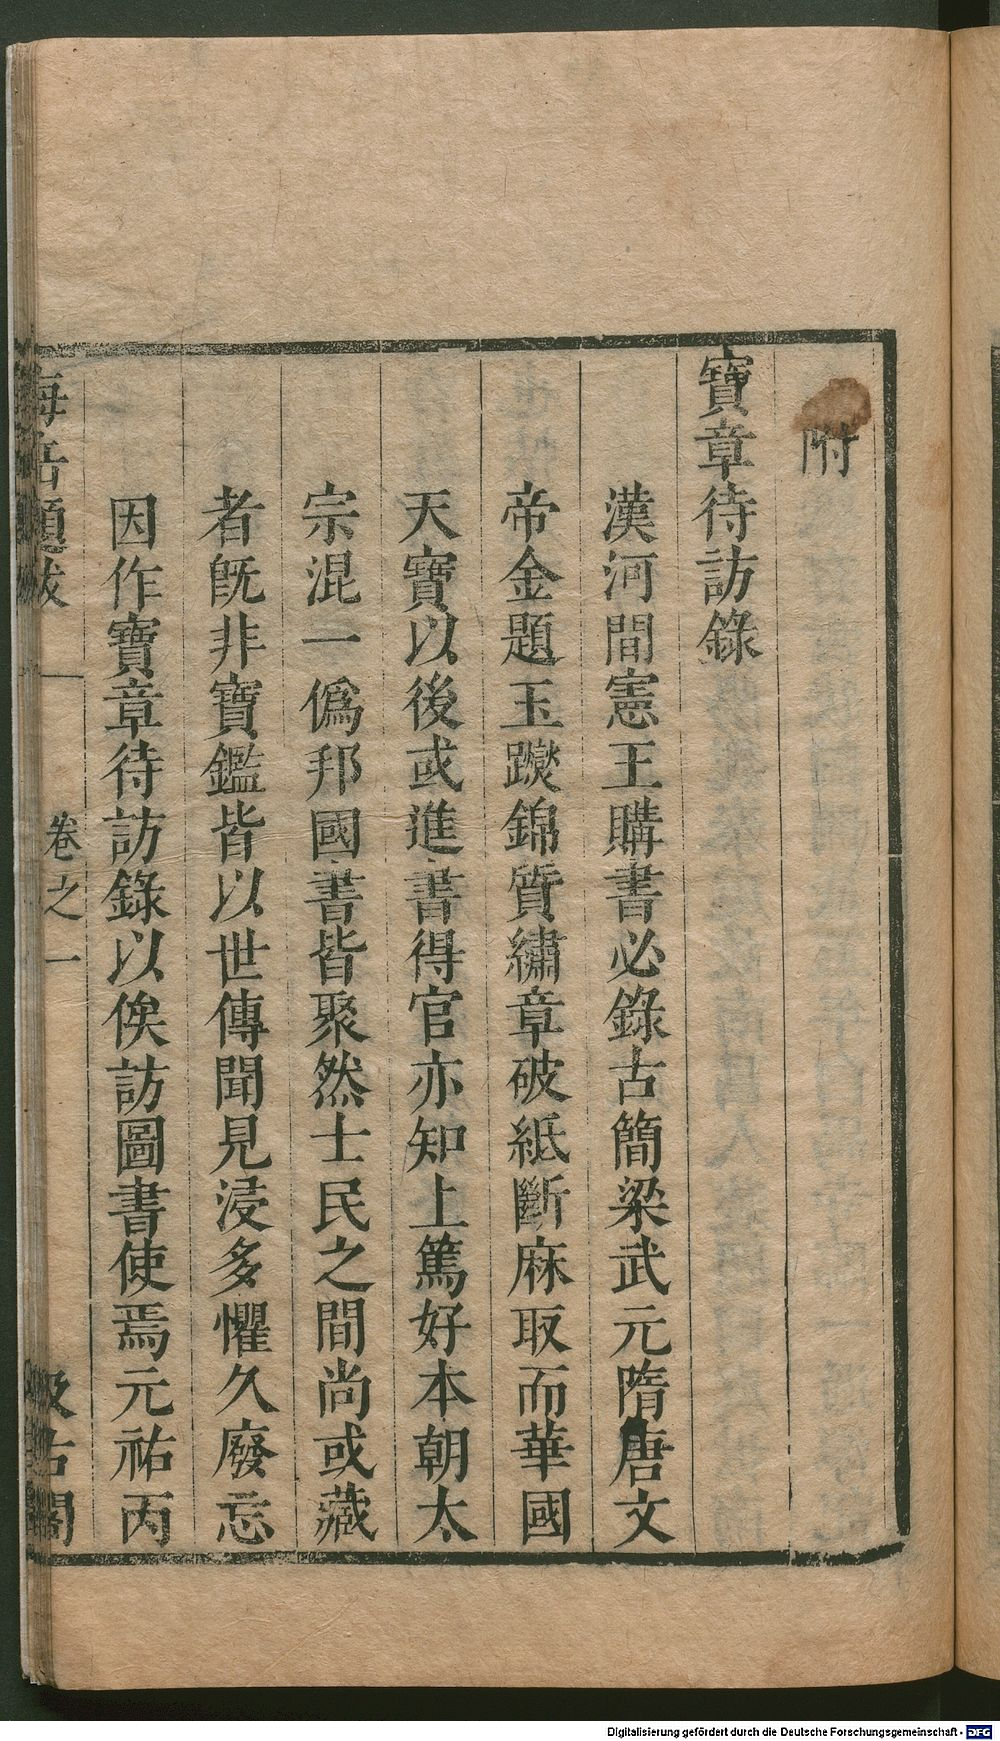 附
寶章待訪錄
漢河間憲王購書必錄古簡梁武元隋唐文
帝金題玉躞錦質繡章破紙斷麻取而華國
天寶以後或進書得官亦知上篤好本朝太
宗混一僞邦國書皆聚然士民之間尚或藏
者旣非寶鑑皆以世傳聞見浸多懼久廢忘
因作寶章待訪錄以俟訪圖書使焉元祐丙
海岳題跋 卷之一 汲古閣
Digitalisierung gefördert durch die Deutsche Forschungsgemeinschaft - DFG